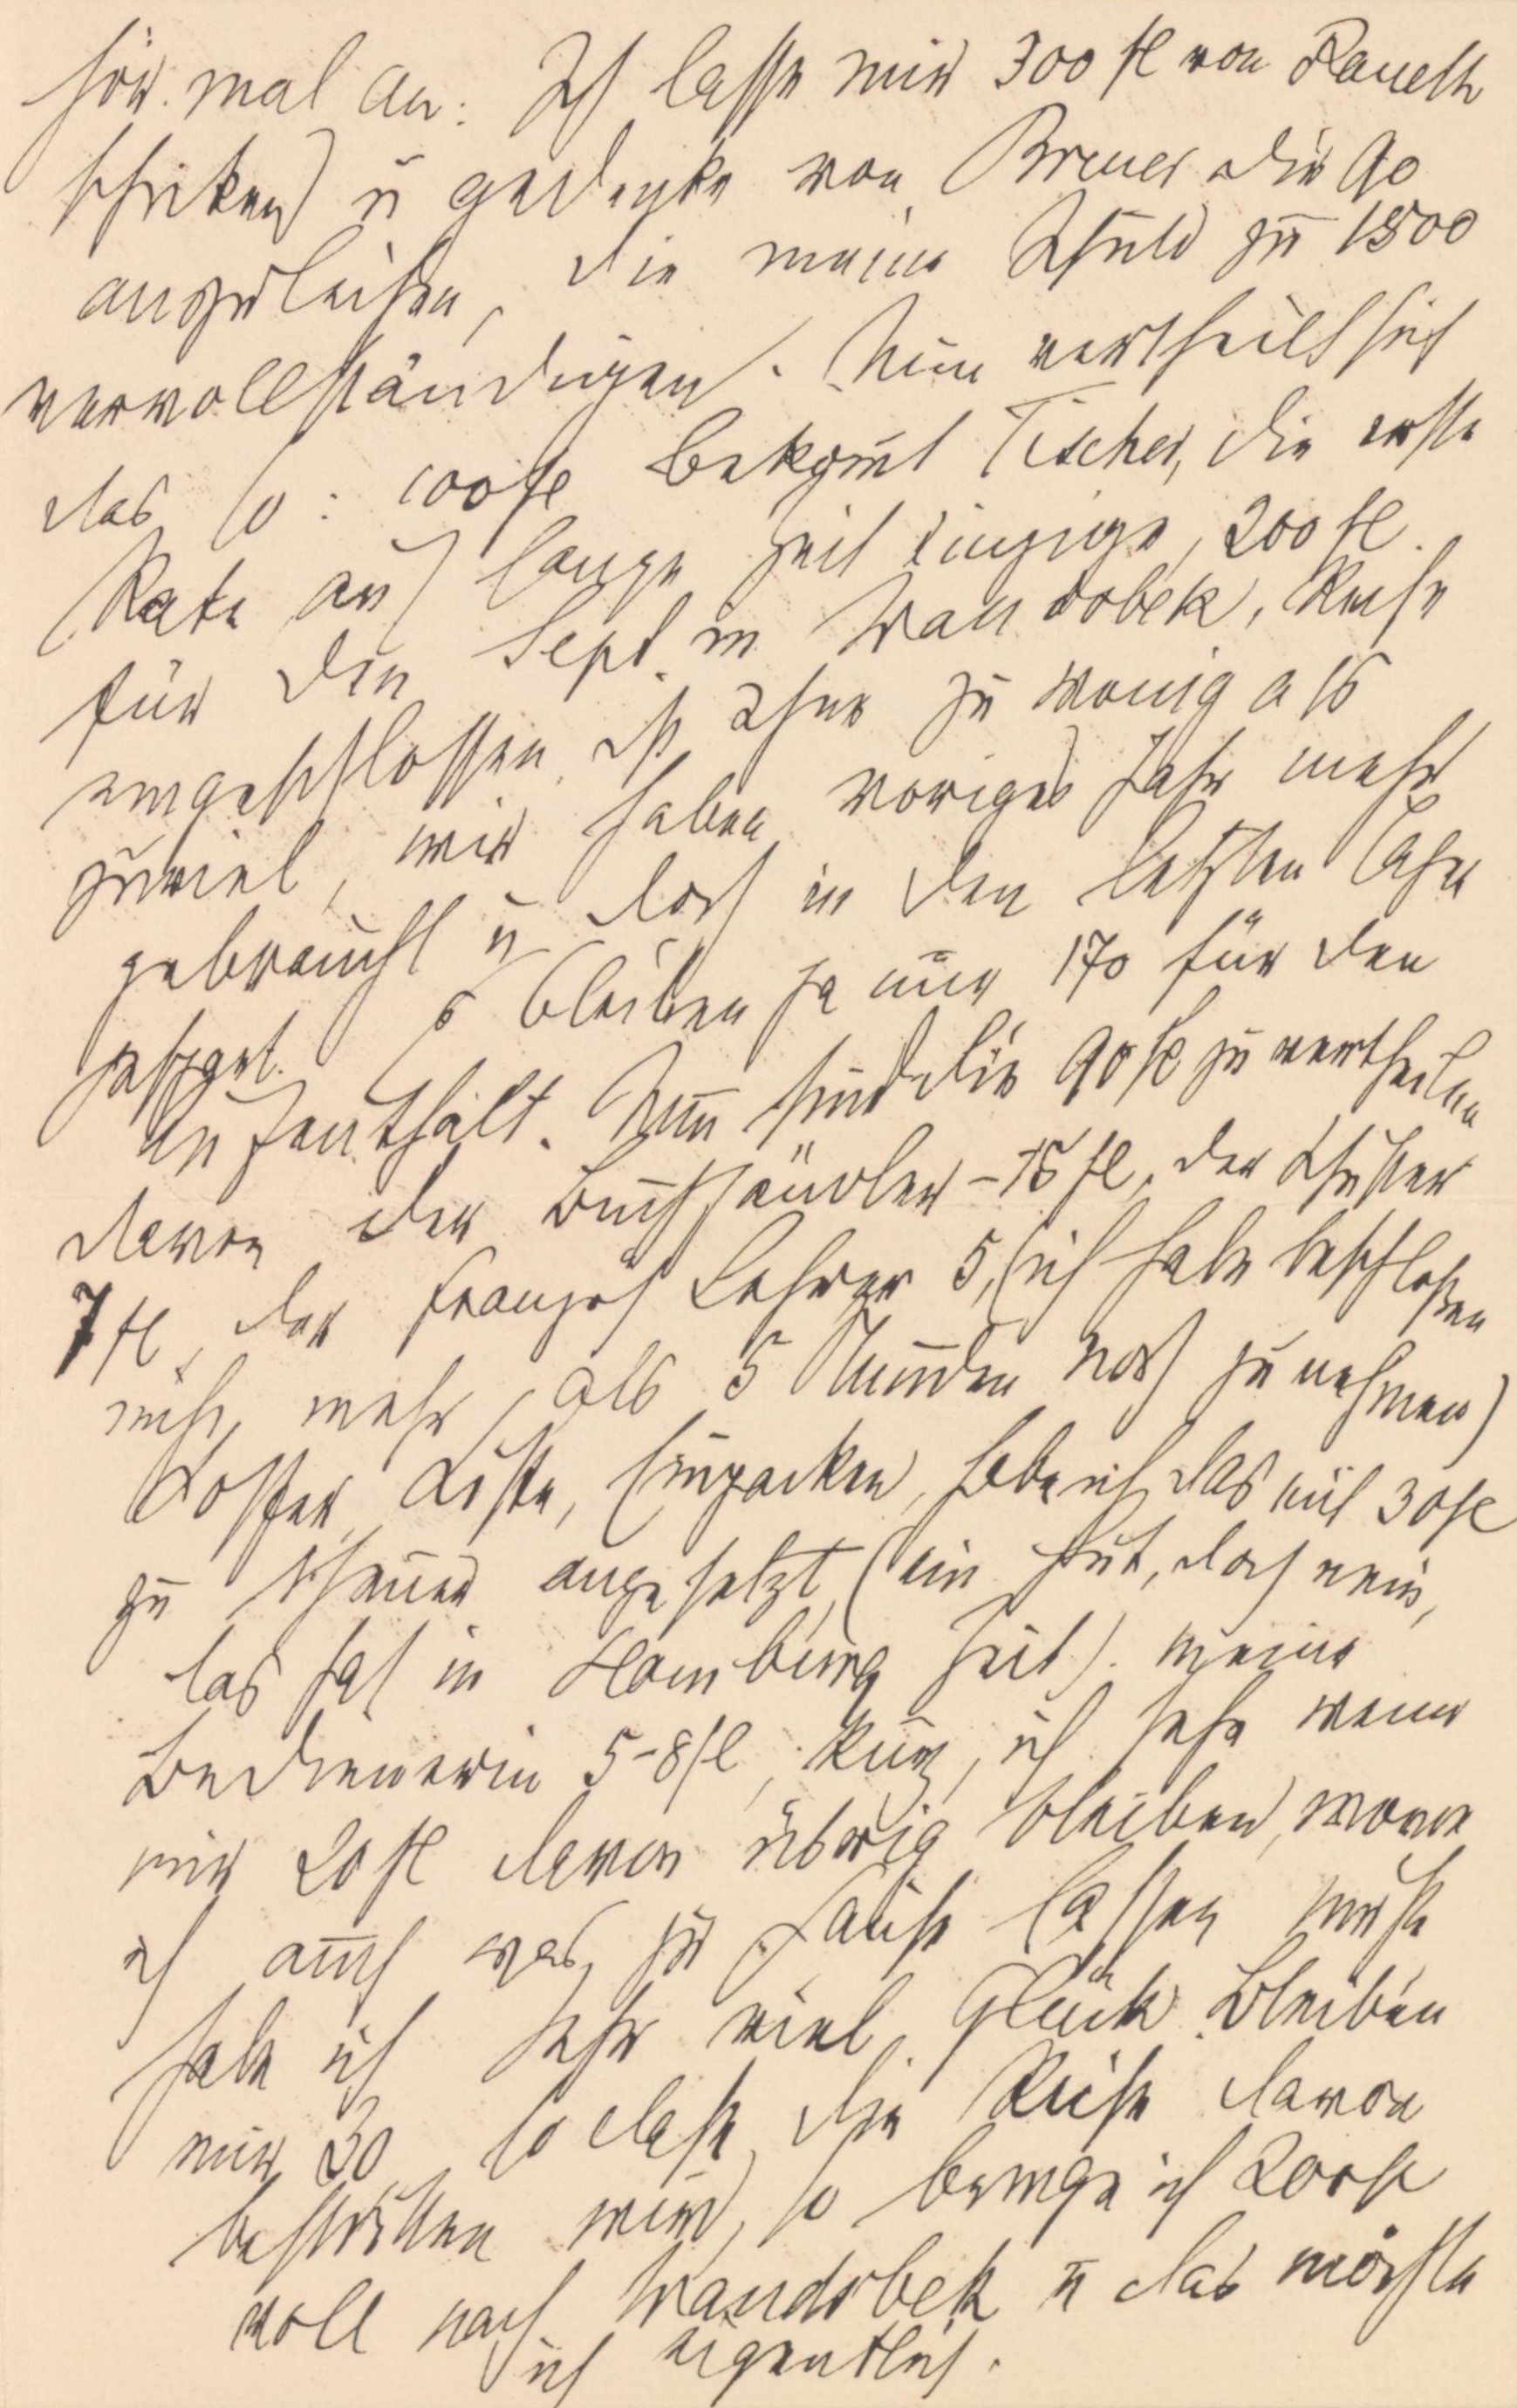 hör mal an: Ich lasse mir 300 fl von Paneth
schicken u gedenke von Breuer die 90
auszuleihen, die meine Schuld zu 1500
vervollständigen. Nun vertheilt sich
das so: 100 fl bekom̄t Tischer, die erste
Rate auf lange Zeit einzige, 200 fl.
für den Sept. in Wandsbek, Reise
eingeschlossen ist eher zu wenig als
zuviel, wir haben voriges Jahr mehr
gebraucht u doch in den letzten
gefzgel. Es bleiben ja nur 170 für den
Aufenthalt. Nun sind die 90 fl zu vertheilen
davon der Buchhändler – 15 fl, der Schuster
7 fl, der französ Lehrer 5, (ich habe beschloßen
nicht mehr als 5 Stunden noch zu nehmen)
Koffer, Kiste, Einpacken, habe ich das mit 30 fl
zu theuer angesetzt, (ein Hut, doch nein,
das hat in Hamburg Zeit). meine
Bedienerin 5–8 fl, kurz, ich sehe wenn
mir 20 fl davon übrig bleiben, wovon
ich auch was zu Hause lassen muß
habe ich sehr viel Glück. Bleiben
mir 30 so daß die Reise davon
bestritten wird, so bringe ich 200 fl
voll nach Wandsbek u das möchte
ich eigentlich.